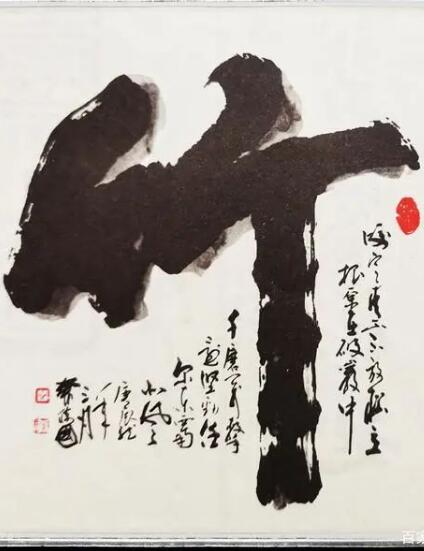 竹
咬定青山不放松立
根原在破巖中
千磨万擊
还坚劲任
尔东西南
北风
三月